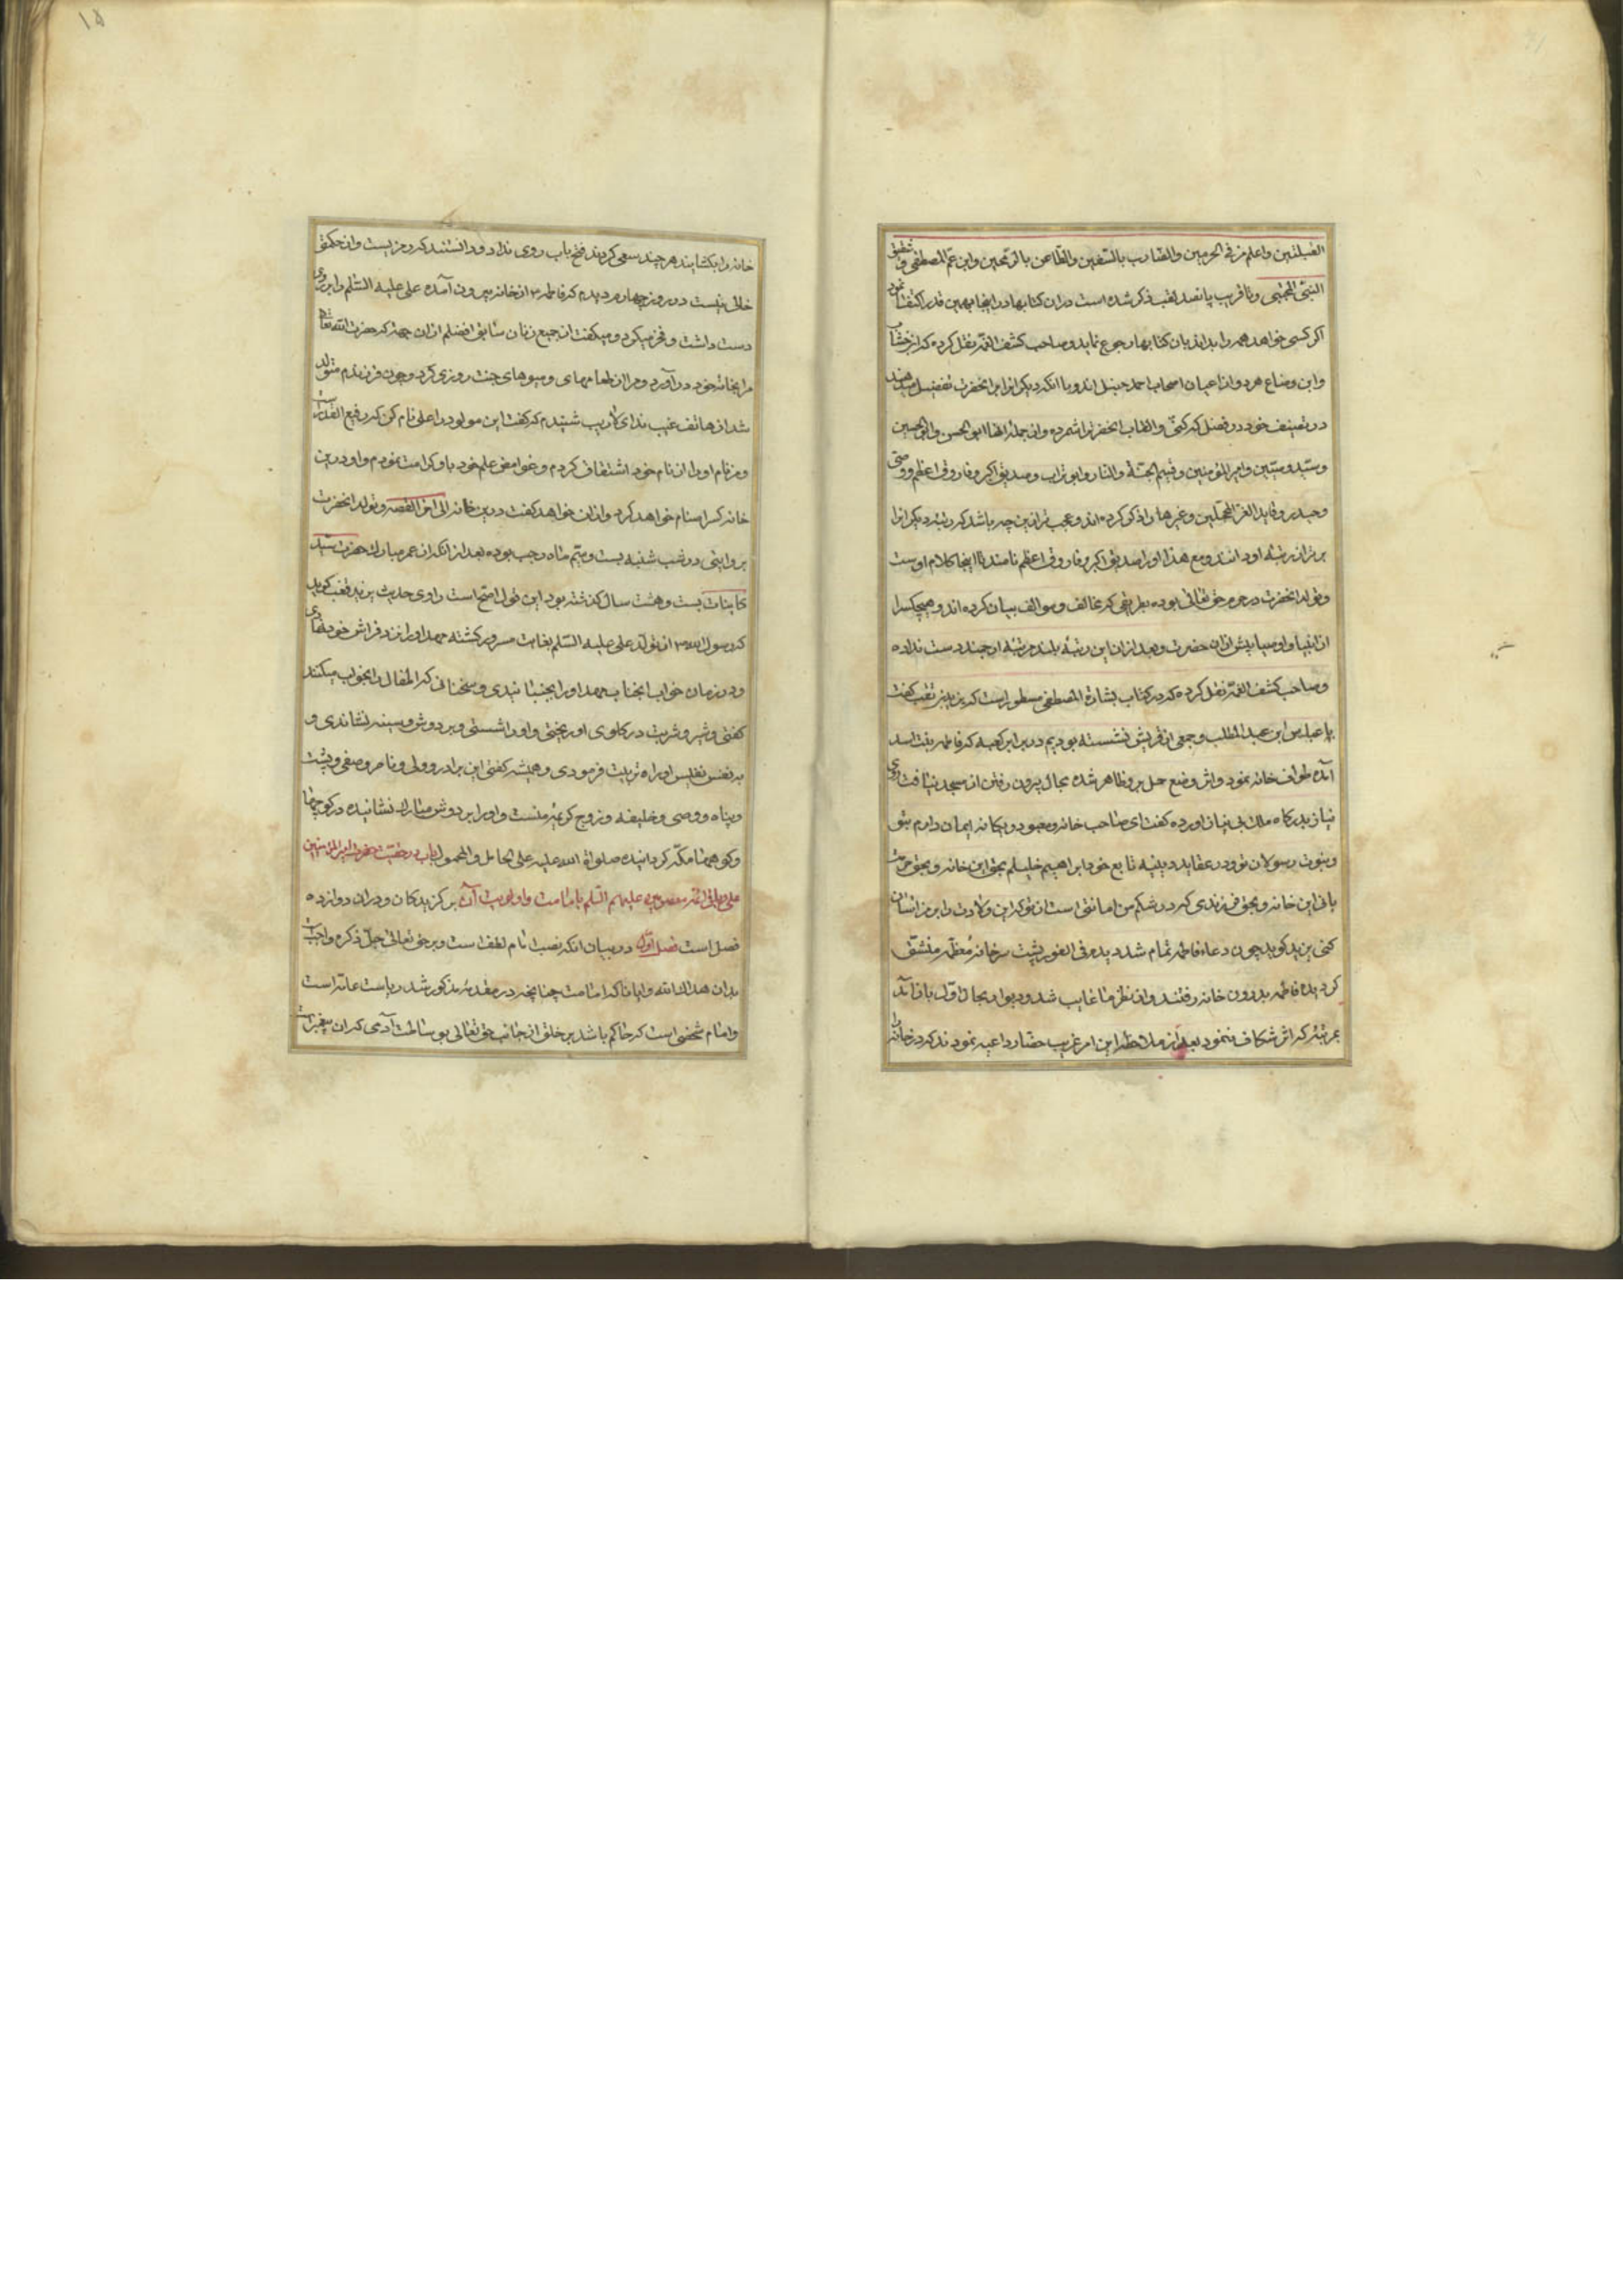 القبلتین واعلم من فی الحرمین والضارب بالسیفین والطاعن بالرمحین وابن عم المصطفی و شقیق
النبی المجتبی وتا قریب پانصد لقب ذکر شده است دران کتابها درینجا بهمین قدر اکتفا نمود
اکر کسی خواهد همه را بداند بان کتابها رجوع نماید وصاحب کشف الغمه نقل کرده که ابن خشاب
وابن وضاع هر دو از اعیان اصحاب احمد حنبل اند وبا انکه دیکرانرا بر انحضرت تفضیل میدهند
در تصنیف خود در فضل که کنی والقاب انحضرترا شمرده واز جمله انها ابو الحسن وابو الحسین
وسید وسبتین وامیر المؤمنین وقسیم الجنة والنار وابو تراب وصدیق اکبر وفاروق اعظم ووصی
وحیدر وقاید الغر المحجلین وغیرها را ذکر کرده اند وعجب تر ازین چه باشد که رتبه دیکرانرا
برتر از رتبه او دانند ومع هذا او را صدیق اکبر وفاروق اعظم نامند تا اینجا کلام اوست
وتولد انحضرت در حرم حق تعالی بوده بطریقی که مخالف وموالف بیان کرده اند وهیچکسرا
از انبیا واوصیا پیش ازان حضرت وبعد ازان این رتبهٔ بلند ومرتبهٔ ارجمند دست نداده
وصاحب کشف الغمه نقل کرده که در کتاب بشارة المصطفی مسطور است که یزید بن قعنب کفت
با عباس ابن عبد المطلب وجمعی از قریش نشسته بودیم در برابر کعبه که فاطمه بنت اسد
آمده طواف خانه نمود واثر وضع حمل برو ظاهر شده مجال بیرون رفتن از مسجد نیافت روی
نیاز بدرکاه ملک بی نیاز اورده کفت ای صاحب خانه ومعبود یکانه ایمان دارم بتو
وبنوت رسولان تو ودر عقاید دینیه تابع خود ابراهیم خلیلم بحق این خانه وبحق حرمت
بانی این خانه وبحق فرزندی که در شکم من امانتی است از تو که این ولادت را بر من آسان
کنی یزید کوید چون دعاء فاطمه تمام شد دیدم فی الفور پشت سر خانهٔ معظمه منشق
کردیده فاطمه بدرون خانه رفتند واز نظر ما غایب شد ودیوار بحال اول باز آمد
بمرتبهٔ که اثر شکاف ننمود بعد از ملاحظه این امر غریب حضار داعیه نمودند که در خانه را
خانه را بکشایند هر چند سعی کردند فتح باب روی نداد ودانستند که رمزیست واز حکمتی
خالی نیست در روز چهارم دیدم که فاطمه از خانه بیرون آمده علی علیه السلم را بر روی
دست داشت وفخر میکرد ومیکفت از جمیع زنان سابق افضلم ازان جهت که حضرت الله تعالی
مرا بخانه خود در آورد ومرا ازان طعامهای ومیوهای جنت روزی کرد وچون فرزندم متولد
شد از هاتف غیب ندای لاریب شنیدم که کفت این مولود را علی نام کن که رفیع القدر است
ومن نام او را از نام خود اشتقاق کردم وغوامض علم خود باو کرامت نمودم واو درین
خانه کسر اصنام خواهد کرد واذان خواهد کفت درین خانه الی اخر القصه وتولد انحضرت
بروایتی در شب شنبه بست وسیم ماه رجب بوده بعد از انکه از عمر مبارک حضرت سید
کاینات بست وهشت سال کذشته بود این قول اصح است راوی حدیث یزید قعنب کوید
که رسول الله از تولد علی علیه السلم بغایت مسرور کشته مهد او را نزد فراش خود نهادی
ودر زمان خواب انجناب مهد او را بجنبانیدی وسخنانی که اطفال را بخواب میکنند
کفتی وشیر وشربت در کلوی او ریختی واو را شستی وبر دوش وسینه نشاندی و
به نفس نفیس او را تربیت فرمودی وهمیشه کفتی این برادر وولی وناصر وصفی وپشت
وپناه ووصی وخلیفه وزوج کریمهٔ منست واو را بر دوش مبارک نشانیده در کوچها
وکوههای مکه کردانیده صلواة الله علیه علی الحامل والمحمول باب در حقیت حضرت امیر المؤمنین
علی وباقی ائمه معصومین علیهم السلم بامامت واولویت آن برکزیدکان ودران دوازده
فصل است فصل اول در بیان انکه نصب امام لطف است وبر حق تعالی جل ذکره واجب
بدان هداک الله وایانا که امامت چنانچه در مقدمه مذکور شد ریاست عامه است
وامام شخصی است که حاکم باشد بر خلق از جانب حق تعالی بوساطت آدمی که ان پیغمبر است